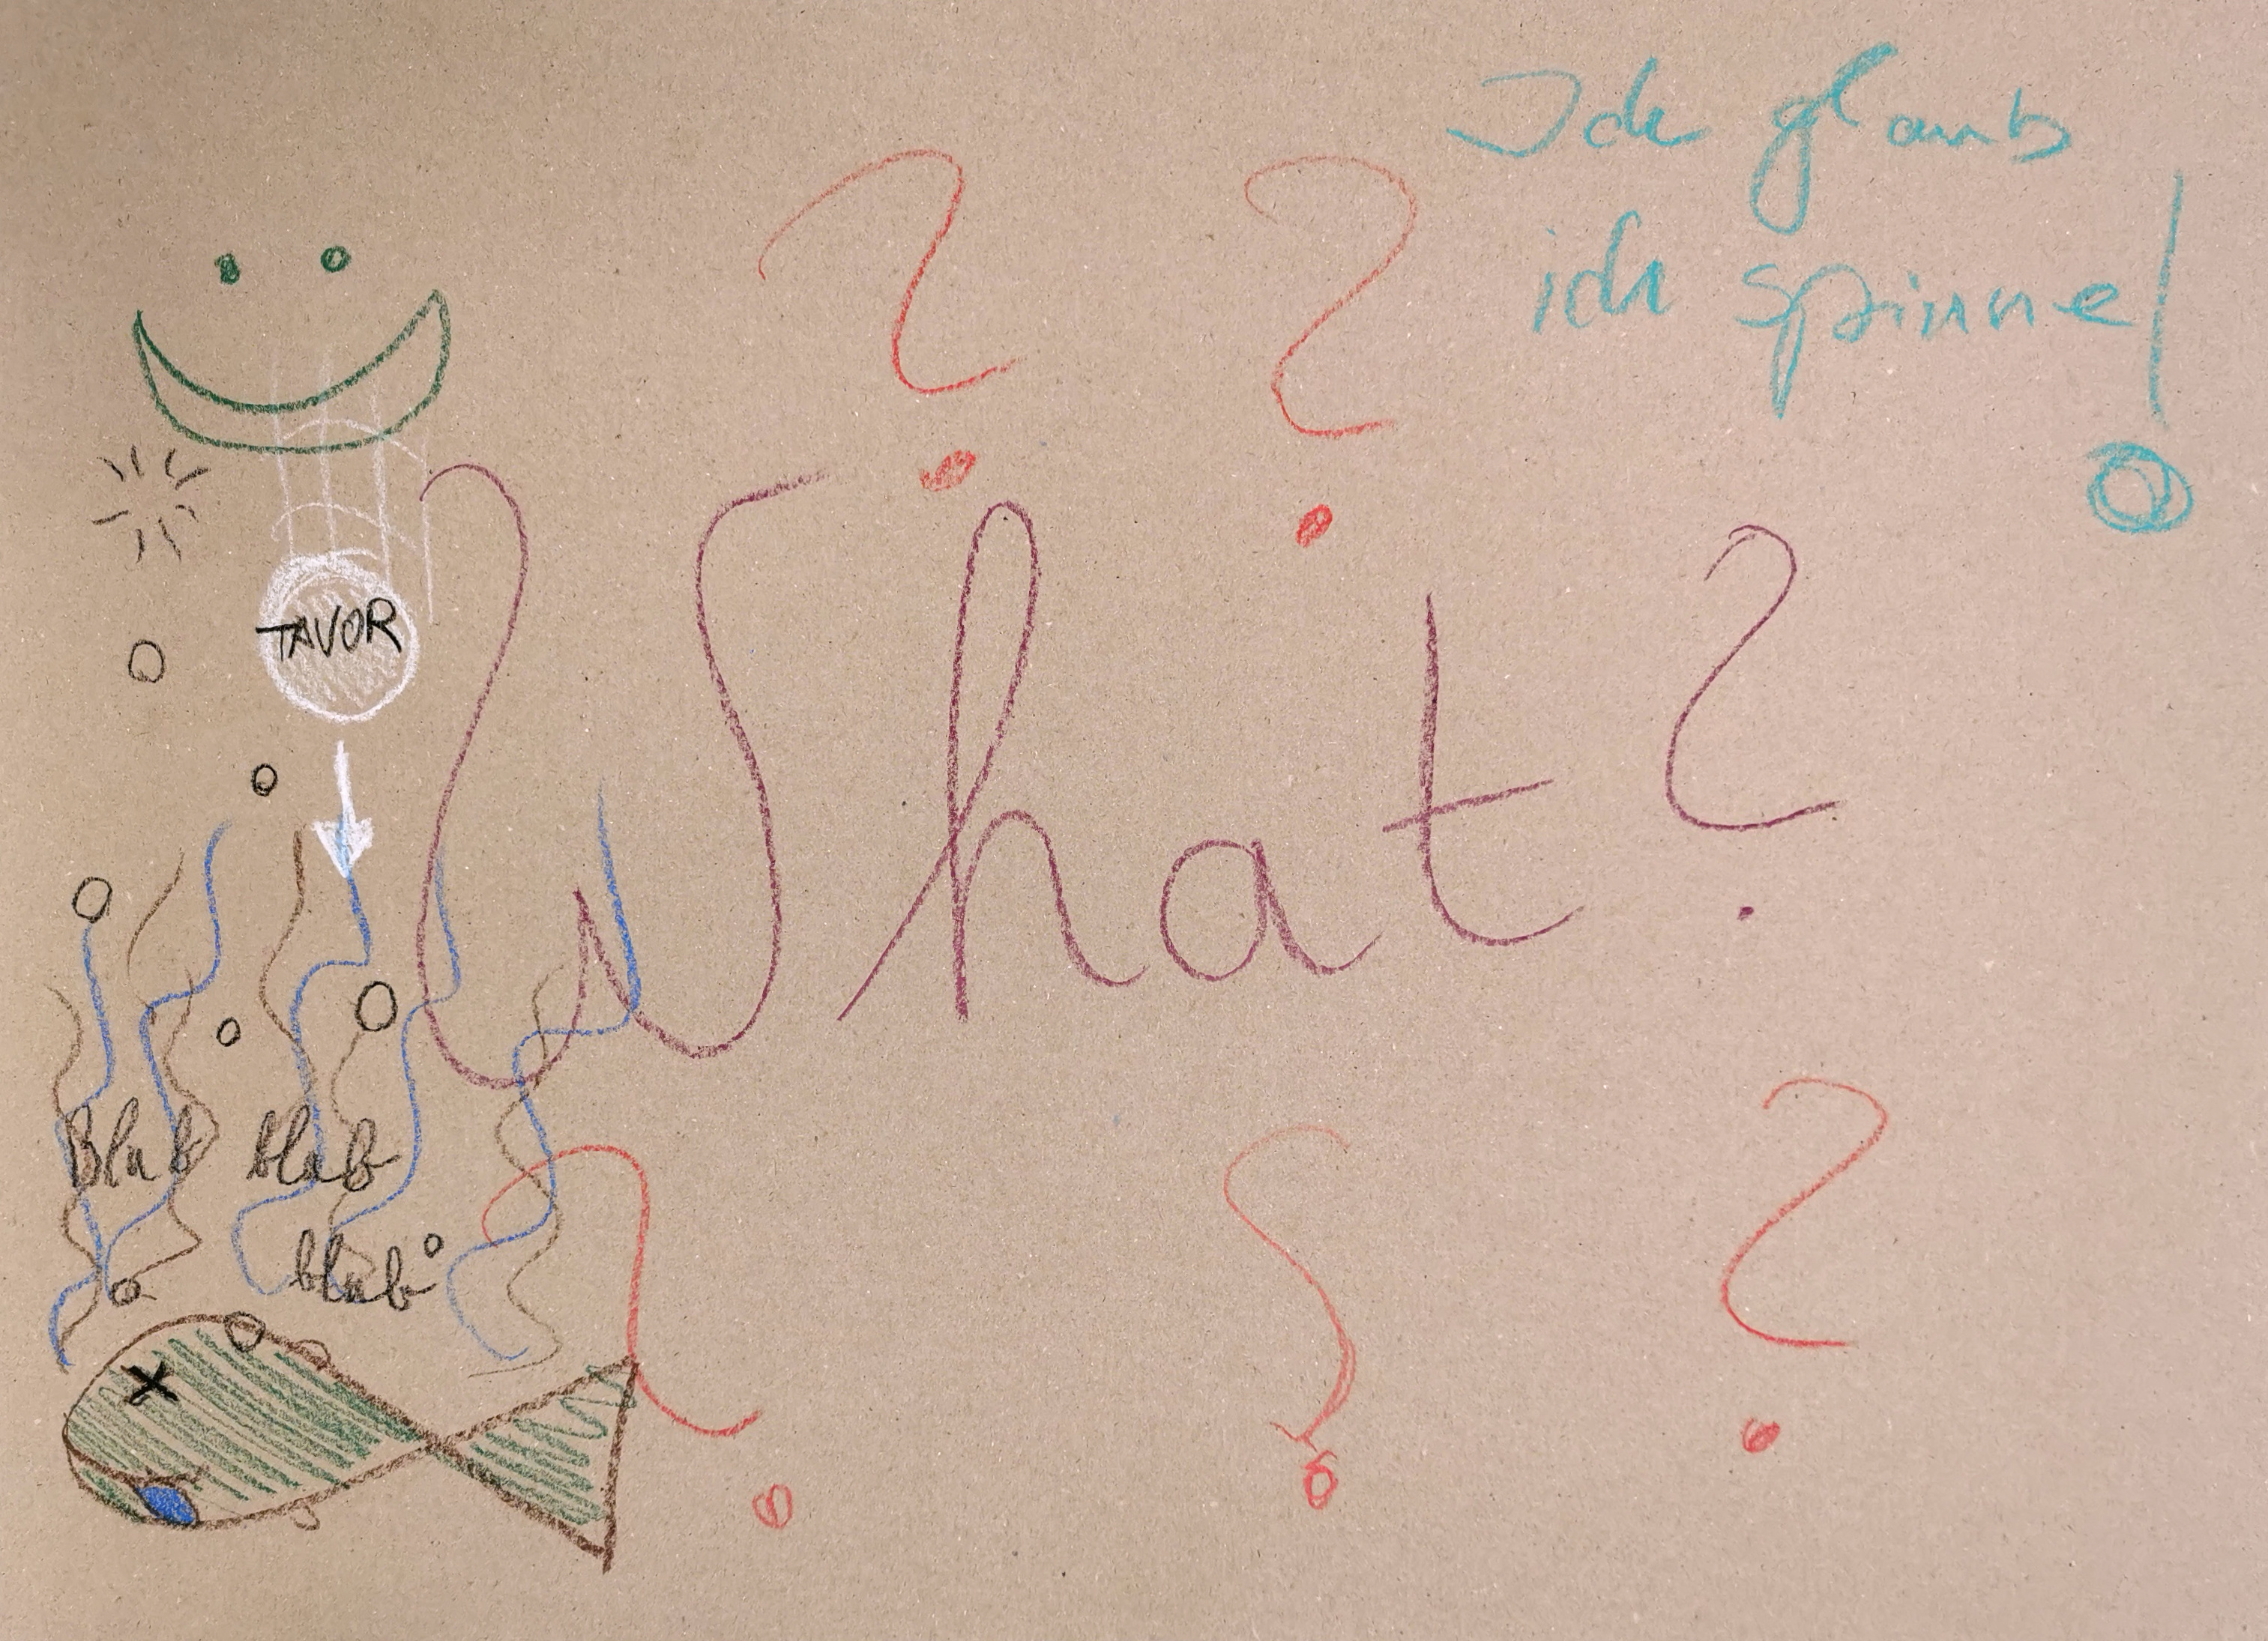 Ich glaub
ich spinne!
? ?
TAVOR
What?
Blub blub
blub
? ? ?